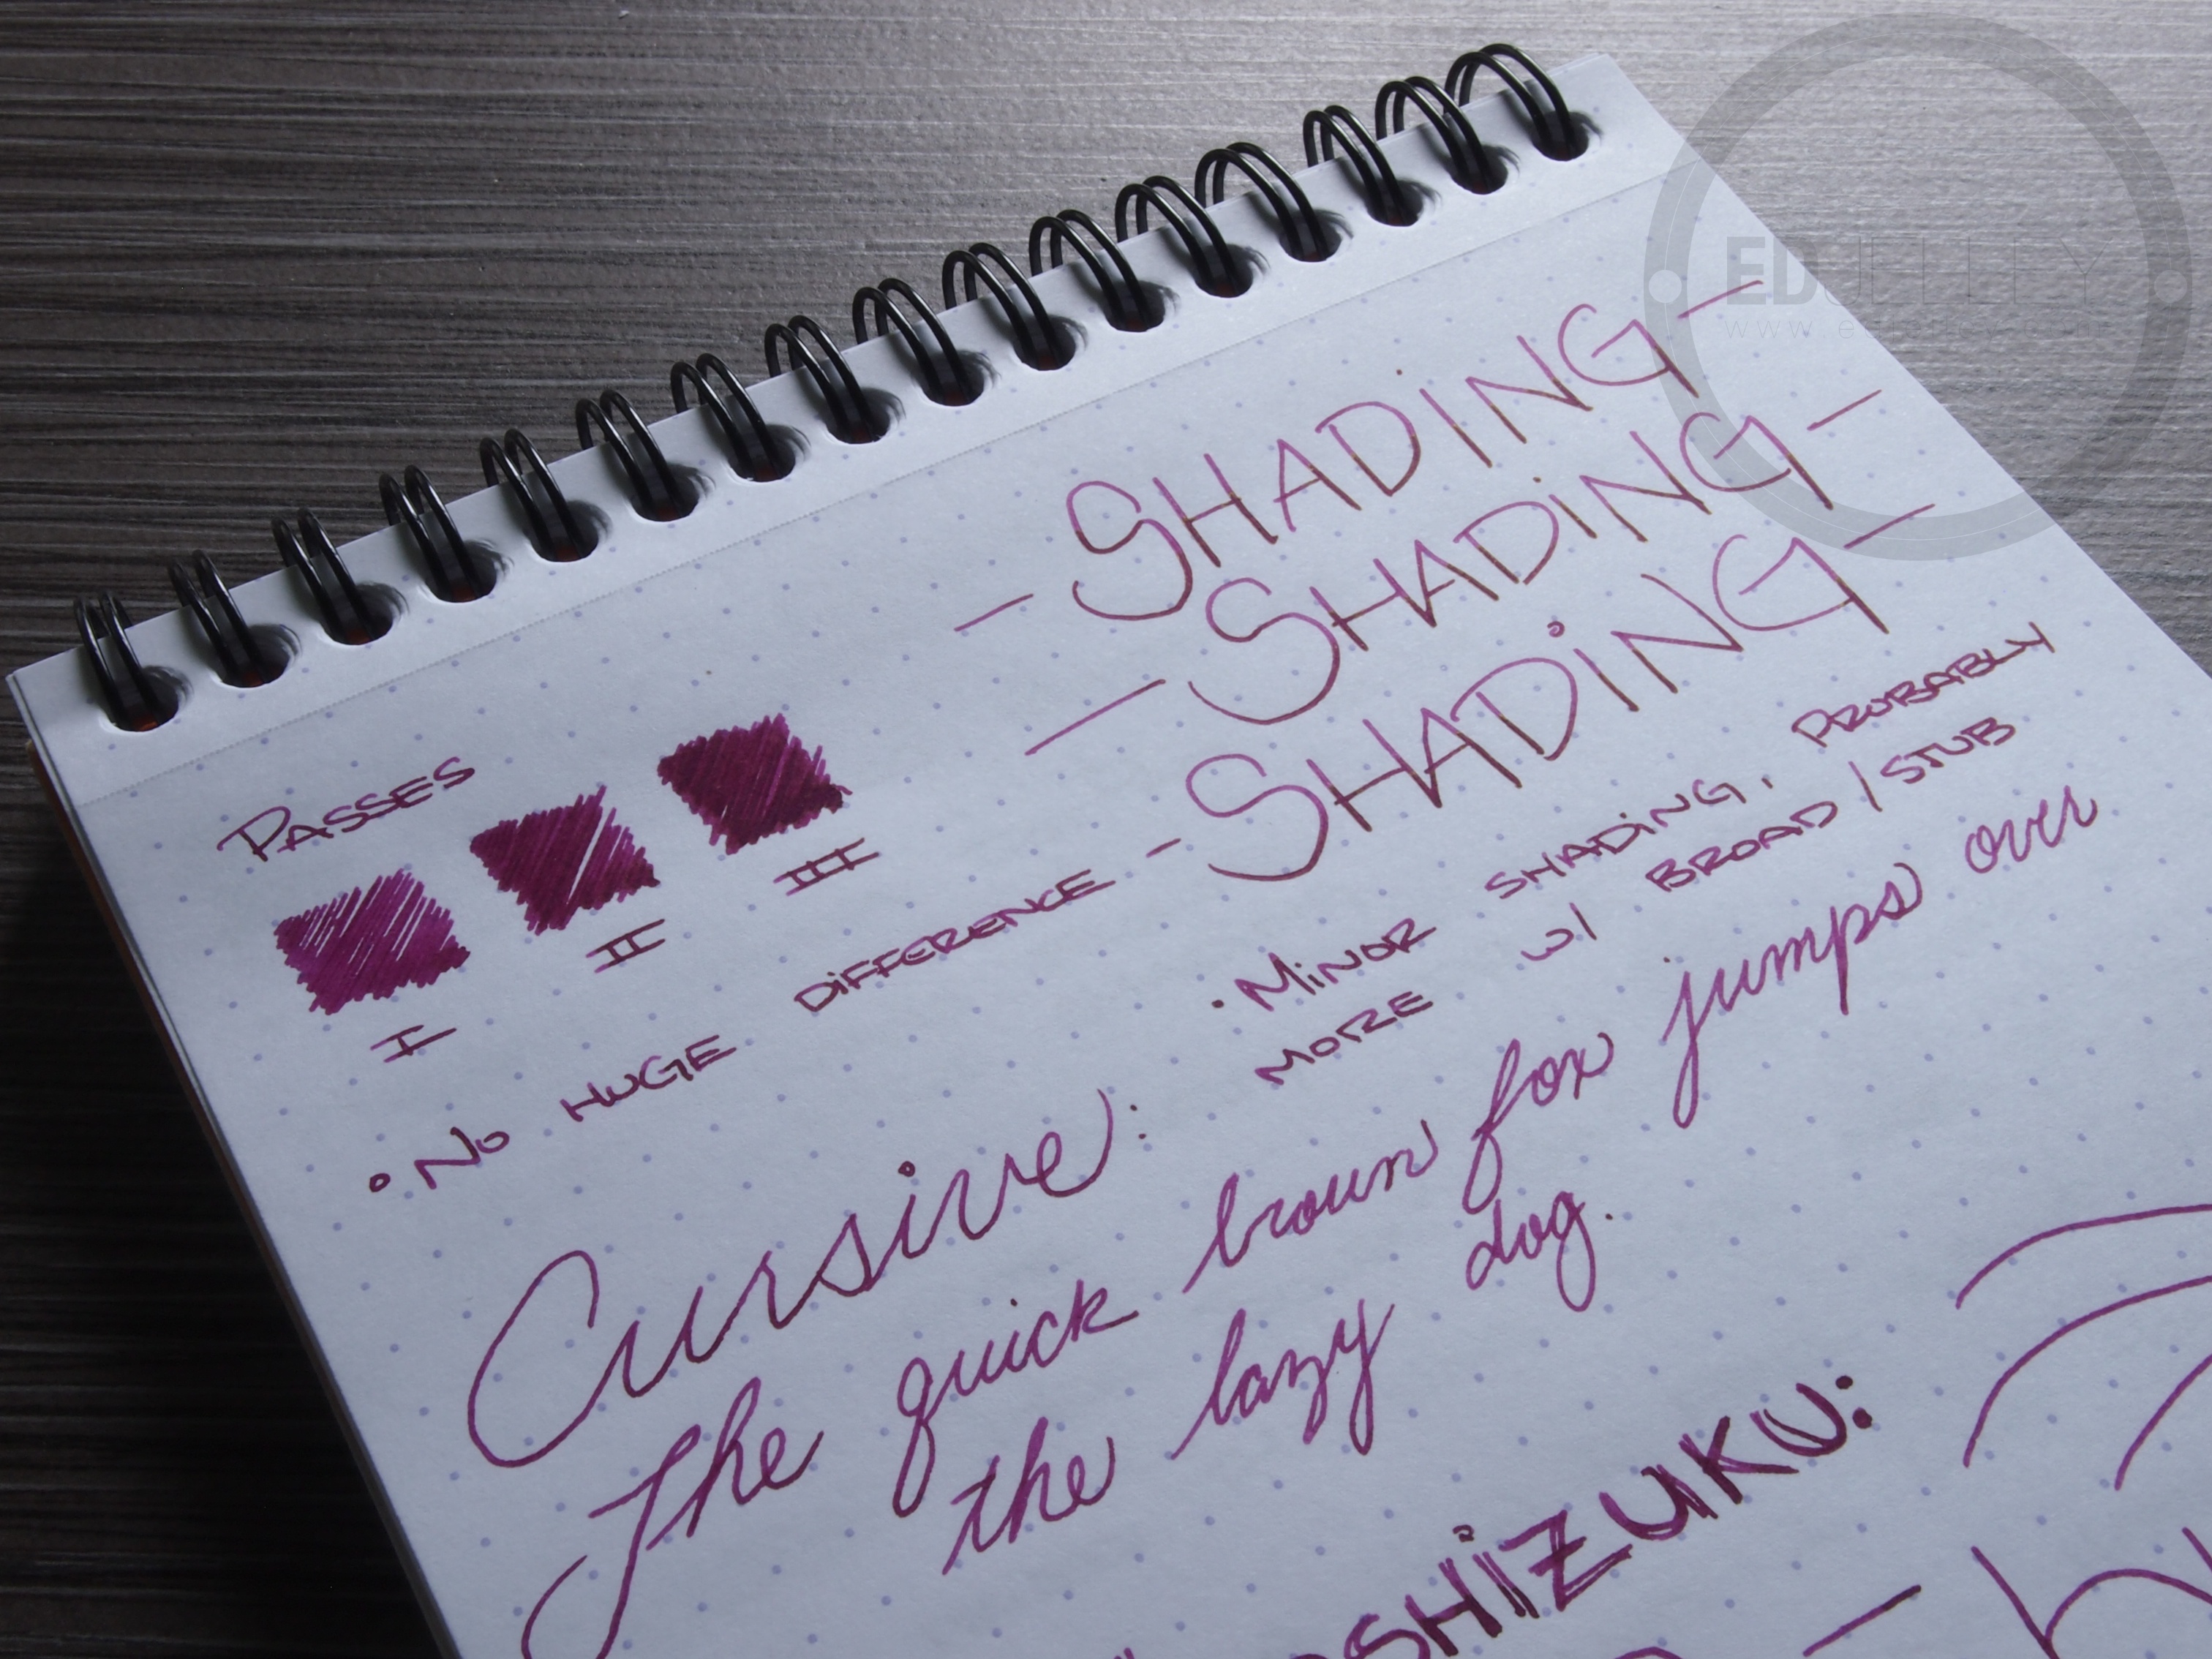 EDJELLEY
-SHADING-
-SHADING-
-SHADING-
PASSES
I II III
• No HUGE DIFFERENCE -
• MINOR SHADING, PROBABLY
MORE w/ BROAD / STUB
Cursive:
The quick brown fox jumps over
the lazy dog.